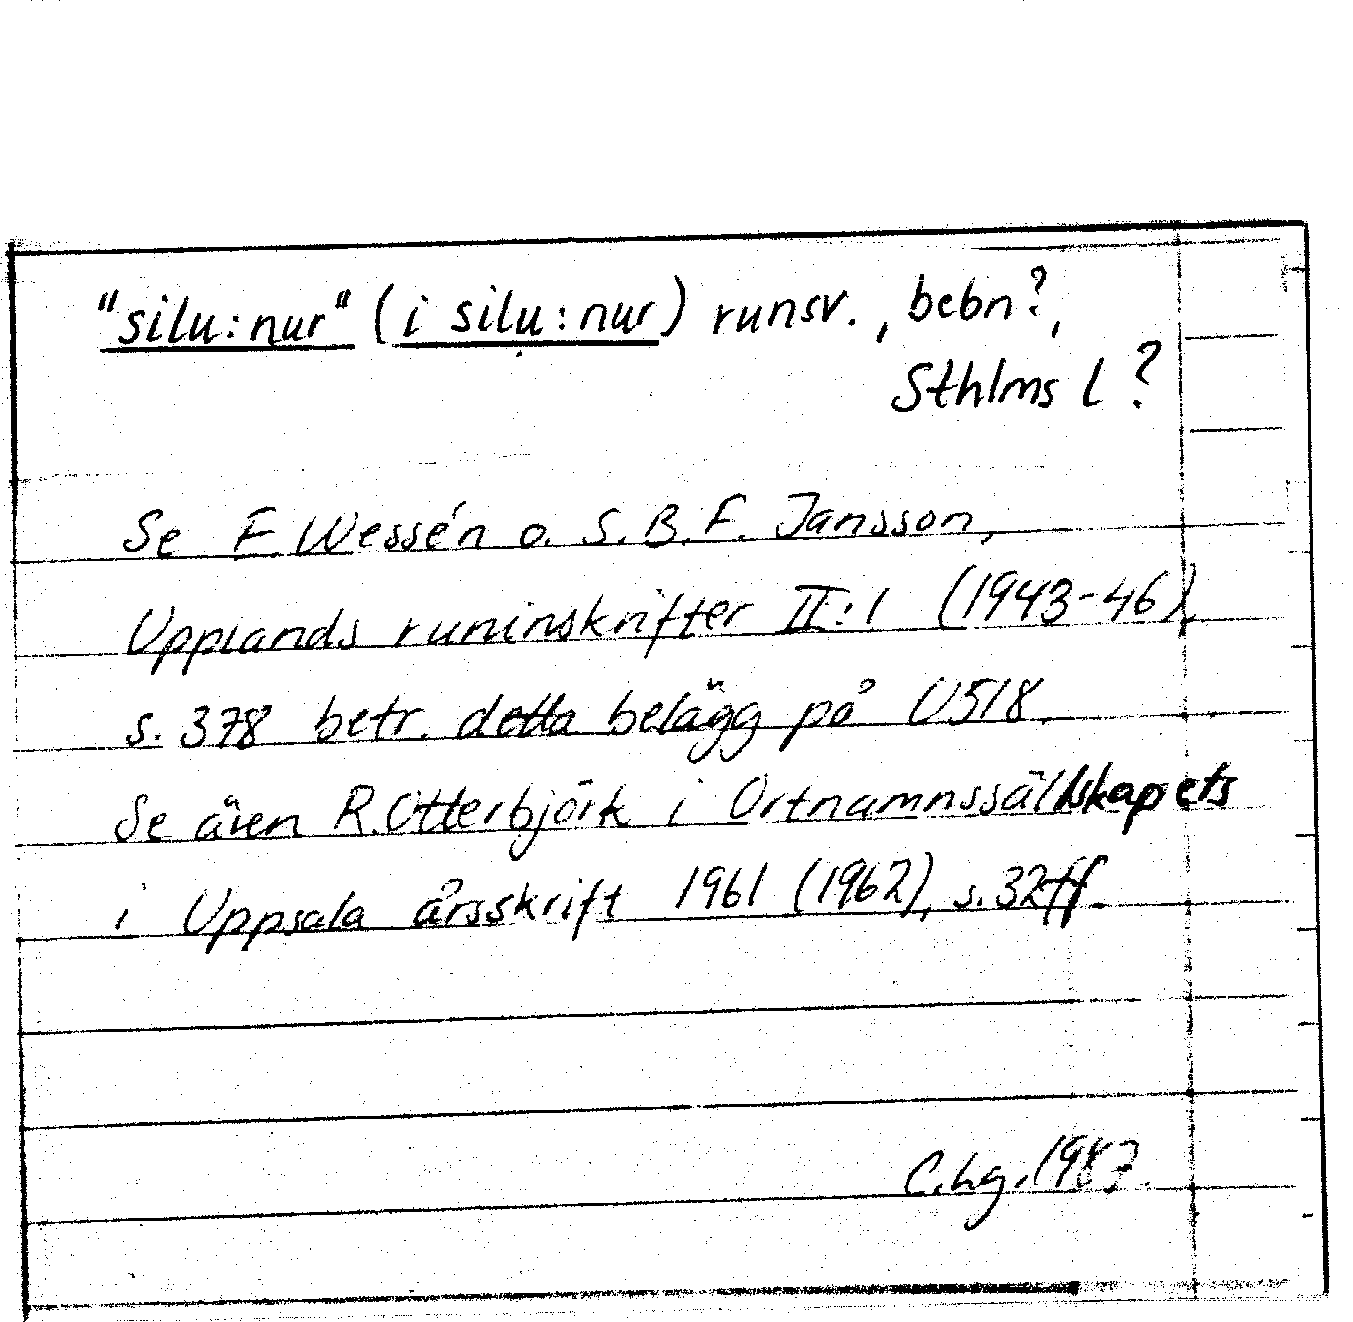 "silu:nur" (i silu:nur) runsv., bebn?,
Sthlms l?
Se E. Wessén o. S.B.F. Jansson,
Upplands runinskrifter II:1 (1943-46),
s. 378 betr. detta belägg på U518.
Se även R. Otterbjörk i Ortnamnssällskapets
i Uppsala årsskrift 1961 (1962), s. 32ff.
C.hg. 1987.